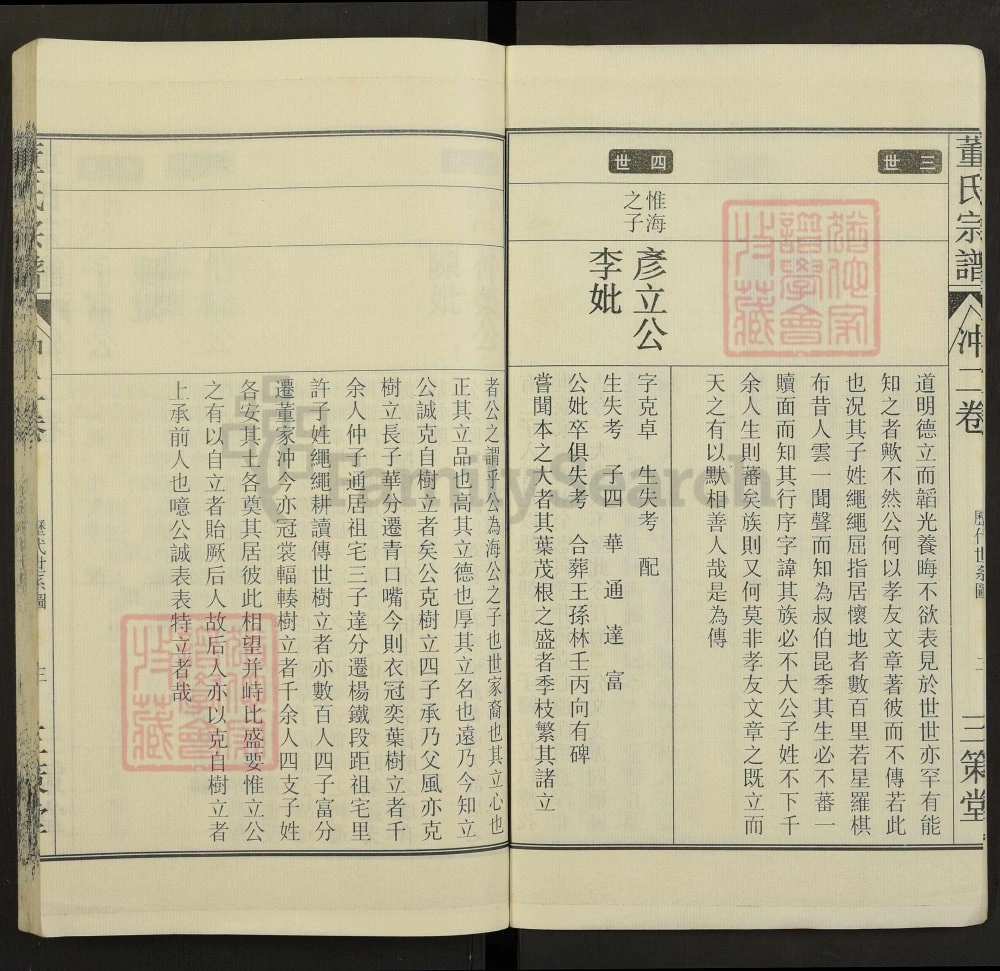 董氏宗譜
冲二卷
歷代世系圖
三策堂
三世
道明德立而韜光養晦不欲表見於世世亦罕有能
知之者歟不然公何以孝友文章著彼而不傳若此
也况其子姓繩繩屈指居懷地者數百里若星羅棋
布昔人雲一聞聲而知為叔伯昆季其生必不蕃一
贖面而知其行序字諱其族必不大公子姓不下千
余人生則蕃矣族則又何莫非孝友文章之既立而
天之有以默相善人哉是為傳
四世
惟海
之子
彥立公
李妣
字克卓 生失考 配
生失考 子四 華 通 達 富
公妣卒俱失考 合葬王孫林壬丙向有碑
嘗聞本之大者其葉茂根之盛者季枝繁其諸立
者公之謂乎公為海公之子也世家裔也其立心也
正其立品也高其立德也厚其立名也遠乃今知立
公誠克自樹立者矣公克樹立四子承乃父風亦克
樹立長子華分遷青口嘴今則衣冠奕葉樹立者千
余人仲子通居祖宅三子達分遷楊鐵段距祖宅里
許子姓繩繩耕讀傳世樹立者亦數百人四子富分
遷董家冲今亦冠裳輻輳樹立者千余人四支子姓
各安其土各奠其居彼此相望并峙比盛要惟立公
之有以自立者貽厥后人故后人亦以克自樹立者
上承前人也噫公誠表表特立者哉
歷代世系圖
三
FamilySearch